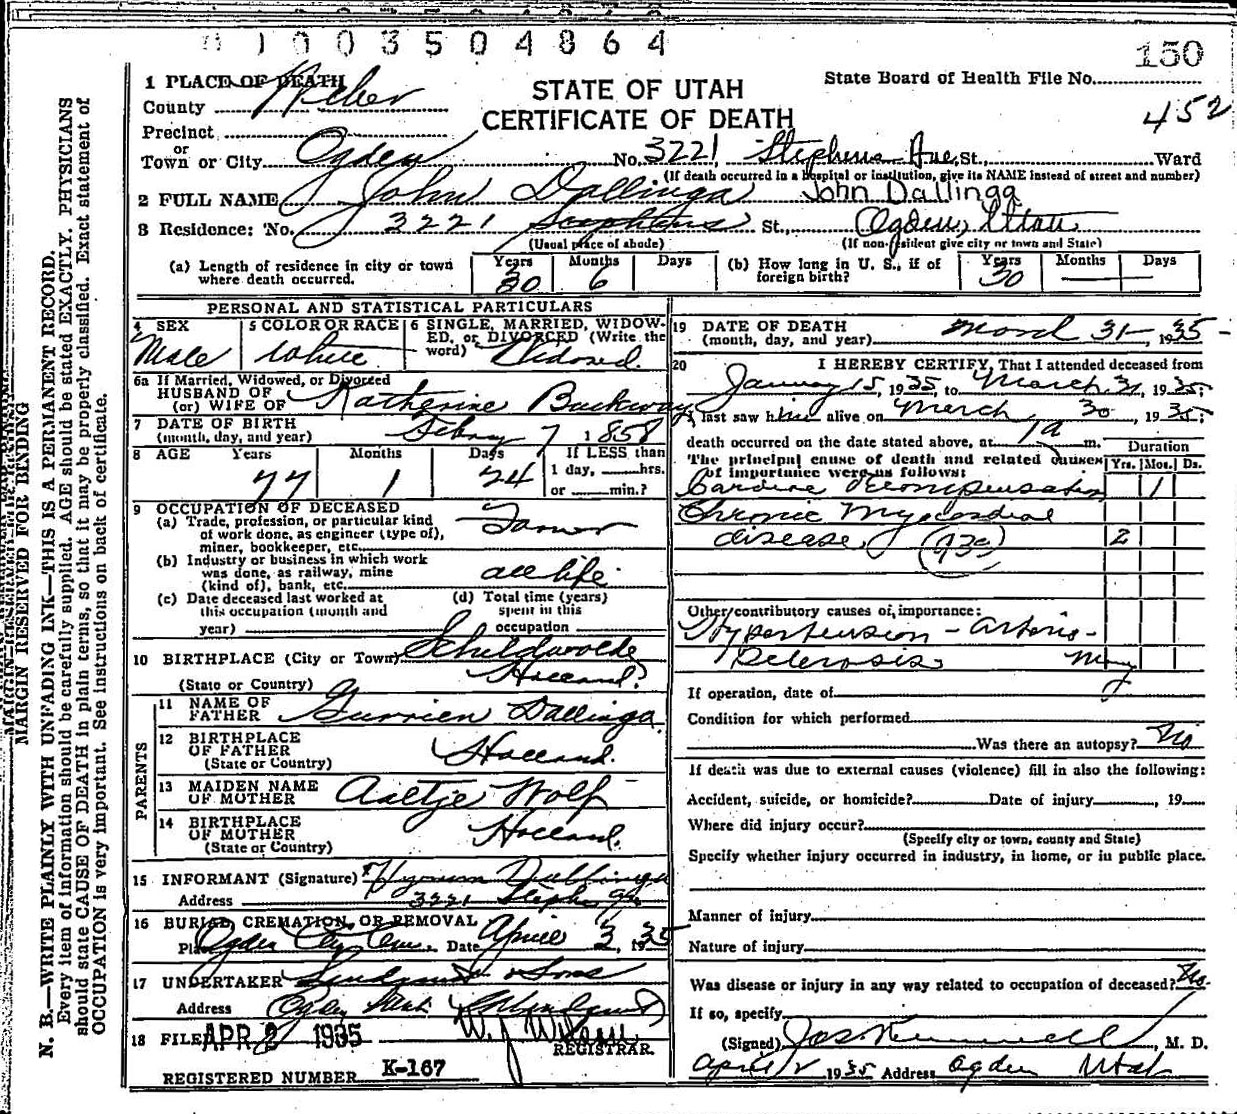 01003504864
150
1 PLACE OF DEATH
STATE OF UTAH
State Board of Health File No.
County Weber
CERTIFICATE OF DEATH
452
Precinct
or
Town or City Ogden No. 3221 Stephens Ave, St., Ward
(If death occurred in a hospital or institution, give its NAME instead of street and number)
2 FULL NAME John Dallinga John Dallinga
3 Residence: No. 3221 Stephens St., Ogden, Utah
(Usual place of abode) (If non-resident give city or town and State)
(a) Length of residence in city or town where death occurred. Years 30 Months 6 Days
(b) How long in U. S., if of foreign birth? Years 30 Months Days
PERSONAL AND STATISTICAL PARTICULARS
4 SEX Male
5 COLOR OR RACE White
6 SINGLE, MARRIED, WIDOWED, or DIVORCED (Write the word) Widowed.
6a If Married, Widowed, or Divorced
HUSBAND OF
(or) WIFE OF Katherine
7 DATE OF BIRTH
(month, day, and year) 7 1858
8 AGE Years 77 Months 1 Days 24
If LESS than
1 day, hrs.
or min.?
9 OCCUPATION OF DECEASED
(a) Trade, profession, or particular kind
of work done, as engineer (type of),
miner, bookkeeper, etc. Farmer
(b) Industry or business in which work
was done, as railway, mine
(kind of), bank, etc. all life
(c) Date deceased last worked at
this occupation (month and
year)
(d) Total time (years)
spent in this
occupation
10 BIRTHPLACE (City or Town) Schildwolde
(State or Country) Holland.
PARENTS
11 NAME OF
FATHER Gurrien Dallinga
12 BIRTHPLACE
OF FATHER
(State or Country) Holland.
13 MAIDEN NAME
OF MOTHER Aaltje Wolf
14 BIRTHPLACE
OF MOTHER
(State or Country) Holland.
15 INFORMANT (Signature) Dallinga
Address 3221 Stephens Ave
16 BURIAL, CREMATION, OR REMOVAL
Place Ogden City Cem. Date April 3, 1935
17 UNDERTAKER Lindquist & Sons
Address Ogden Utah
18 FILED APR 2 1935
REGISTRAR.
REGISTERED NUMBER K-167
19 DATE OF DEATH
(month, day, and year) March 31-, 1935-
20 I HEREBY CERTIFY, That I attended deceased from
January 15, 1935, to March 31, 1935;
I last saw him alive on March 30, 1935;
death occurred on the date stated above, at 1 a m.
The principal cause of death and related causes
of importance were as follows:
Duration
Yrs. Mos. Ds.
Cardiac Decompensation 1
Chronic Myocardial
disease (93c) 2
Other contributory causes of importance:
Hypertension - arterio-
sclerosis Many
If operation, date of
Condition for which performed
Was there an autopsy? No
If death was due to external causes (violence) fill in also the following:
Accident, suicide, or homicide? Date of injury , 19
Where did injury occur?
(Specify city or town, county and State)
Specify whether injury occurred in industry, in home, or in public place.
Manner of injury
Nature of injury
Was disease or injury in any way related to occupation of deceased? No-
If so, specify
(Signed) , M. D.
April 2 1935 Address Ogden Utah
MARGIN RESERVED FOR BINDING
N. B.—WRITE PLAINLY WITH UNFADING INK—THIS IS A PERMANENT RECORD.
Every item of information should be carefully supplied. AGE should be stated EXACTLY. PHYSICIANS
should state CAUSE OF DEATH in plain terms, so that it may be properly classified. Exact statement of
OCCUPATION is very important. See instructions on back of certificate.